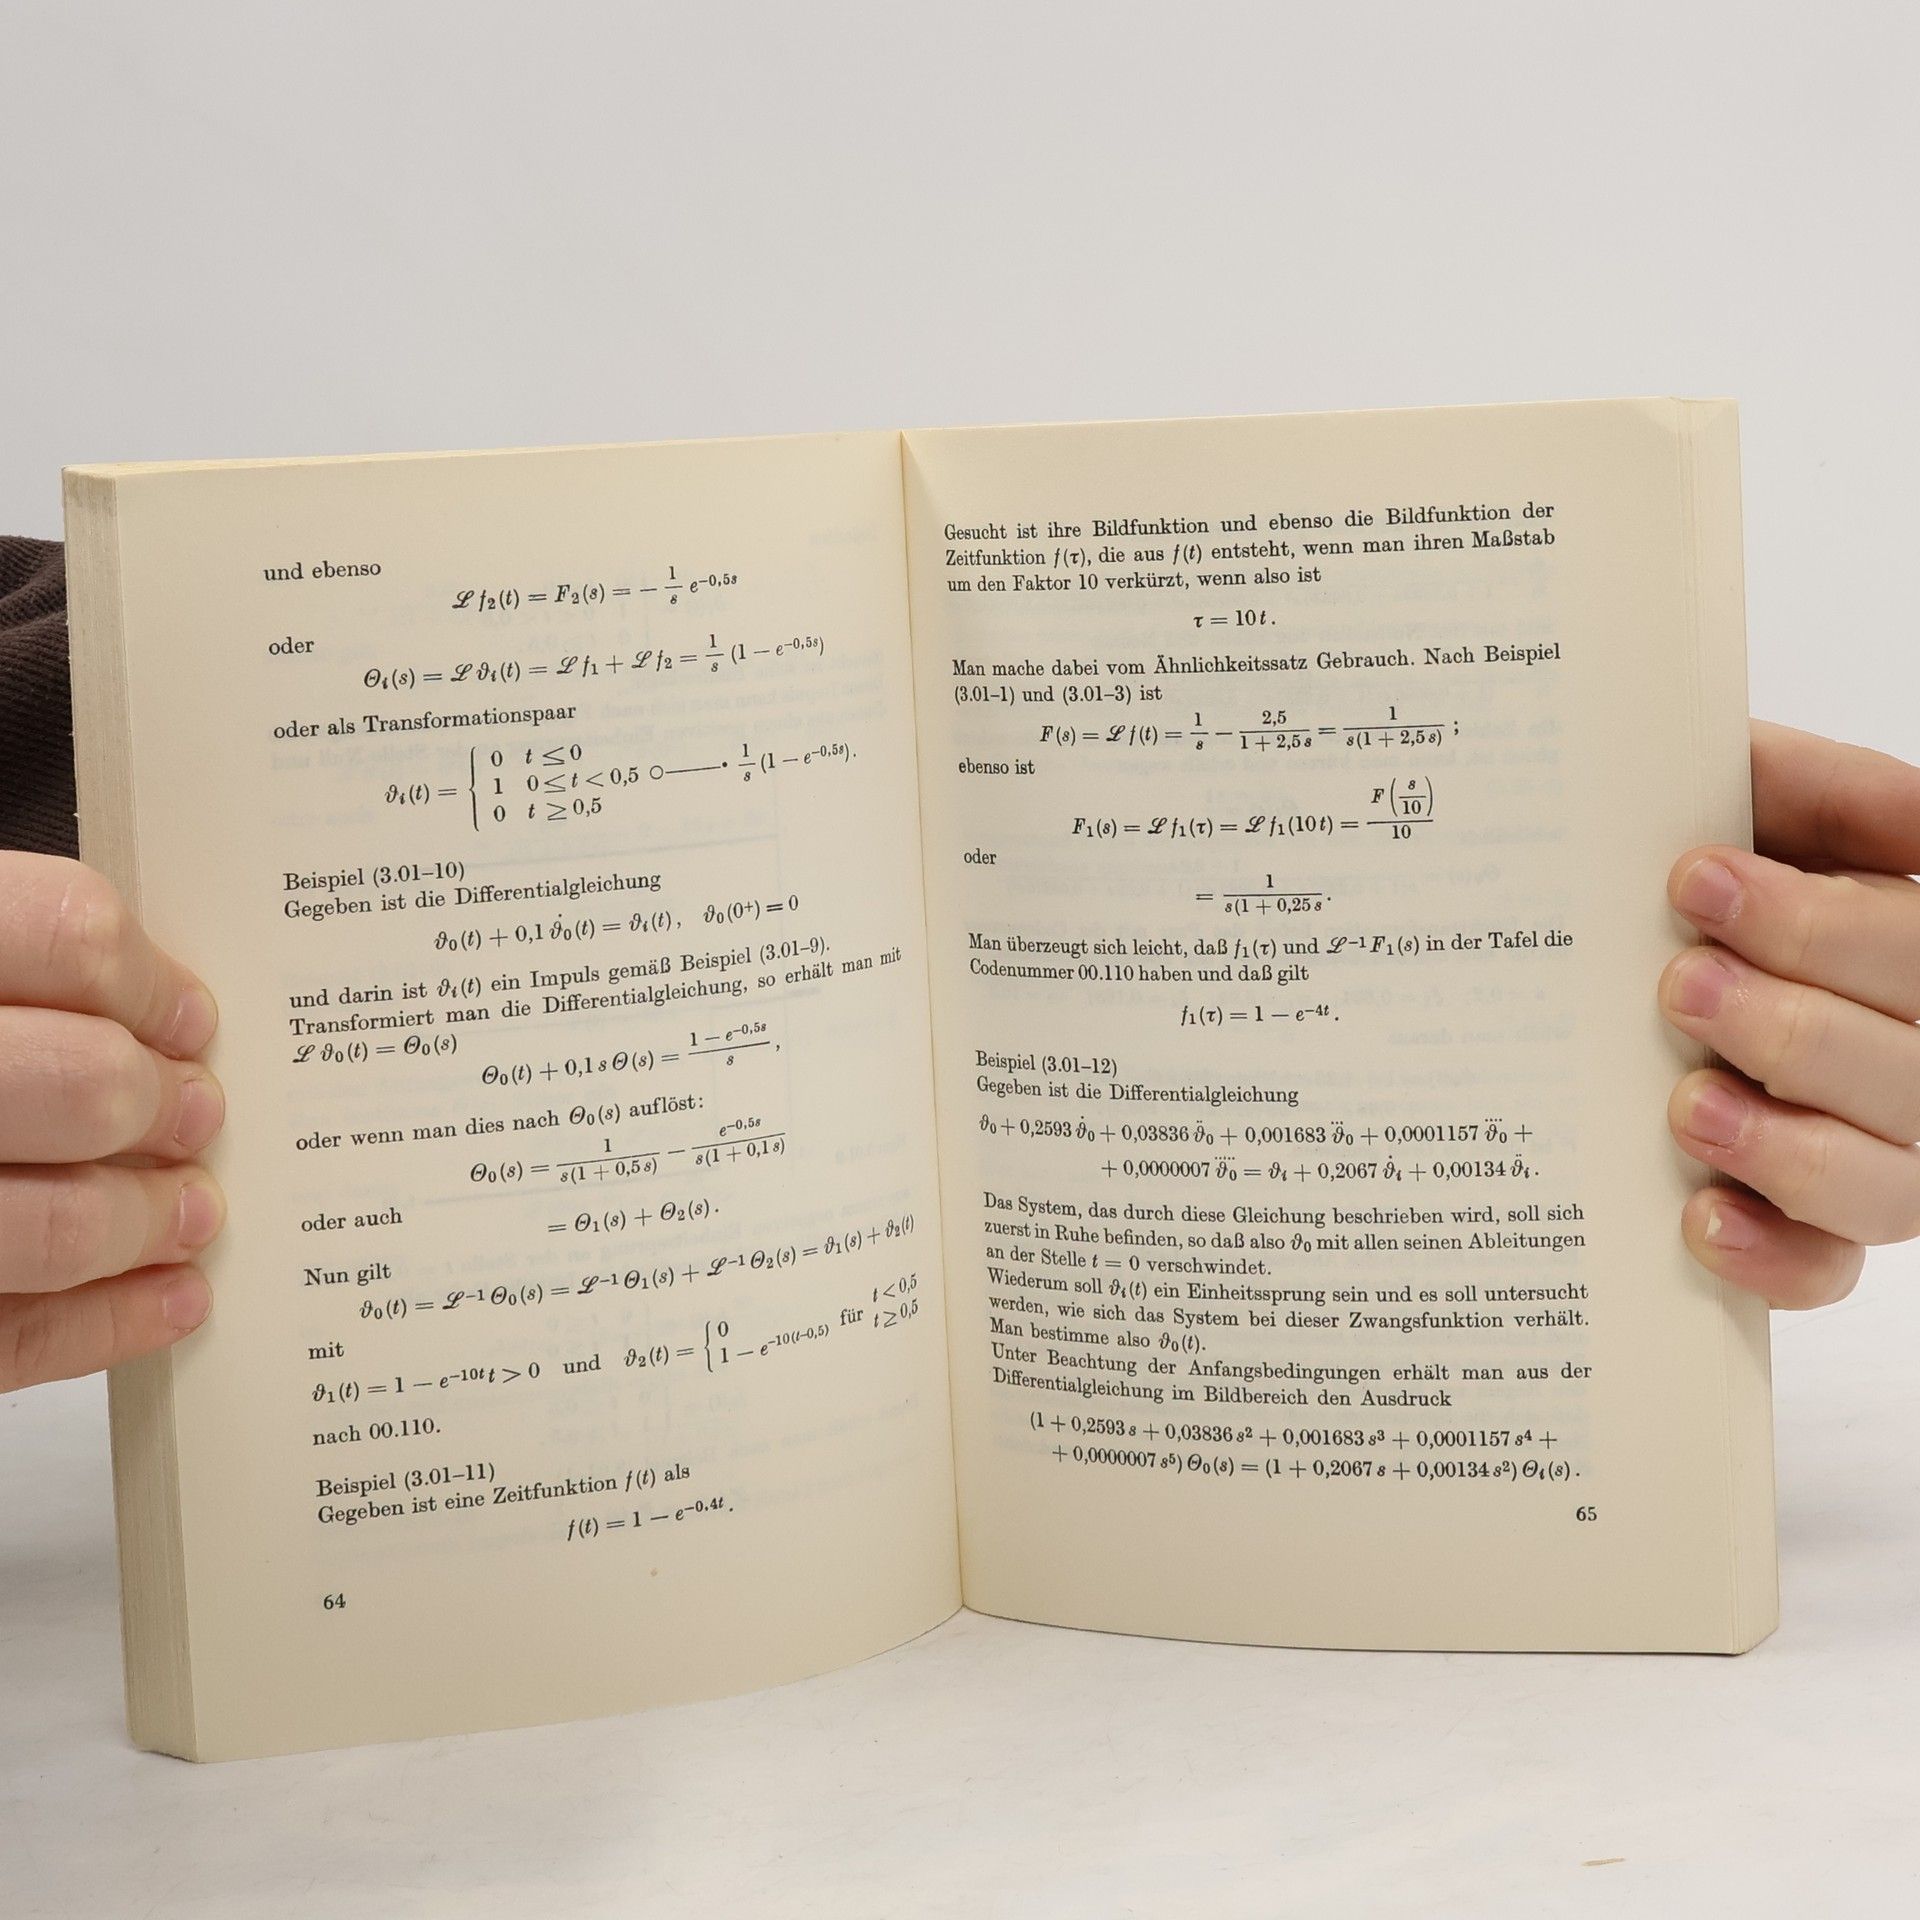 und ebenso
ℒ f₂(t) = F₂(s) = − 1/s e^−0,5s
oder
Θᵢ(s) = ℒ ϑᵢ(t) = ℒ f₁ + ℒ f₂ = 1/s (1 − e^−0,5s)
oder als Transformationspaar
ϑᵢ(t) = { 0 t ≤ 0
1 0 ≤ t < 0,5 ○——• 1/s (1 − e^−0,5s).
0 t ≥ 0,5
Beispiel (3.01–10)
Gegeben ist die Differentialgleichung
ϑ₀(t) + 0,1 ϑ̇₀(t) = ϑᵢ(t), ϑ₀(0⁺) = 0
und darin ist ϑᵢ(t) ein Impuls gemäß Beispiel (3.01–9).
Transformiert man die Differentialgleichung, so erhält man mit
ℒ ϑ₀(t) = Θ₀(s)
Θ₀(t) + 0,1 s Θ(s) = (1 − e^−0,5s)/s ,
oder wenn man dies nach Θ₀(s) auflöst:
Θ₀(s) = 1/(s(1 + 0,5 s)) − e^−0,5s/(s(1 + 0,1 s))
oder auch
= Θ₁(s) + Θ₂(s).
Nun gilt
ϑ₀(t) = ℒ⁻¹ Θ₀(s) = ℒ⁻¹ Θ₁(s) + ℒ⁻¹ Θ₂(s) = ϑ₁(s) + ϑ₂(t)
mit
ϑ₁(t) = 1 − e^−10t t > 0 und ϑ₂(t) = { 0 für t < 0,5
1 − e^−10(t−0,5) t ≥ 0,5
nach 00.110.
Beispiel (3.01–11)
Gegeben ist eine Zeitfunktion f(t) als
f(t) = 1 − e^−0.4t .
64
Gesucht ist ihre Bildfunktion und ebenso die Bildfunktion der
Zeitfunktion f(τ), die aus f(t) entsteht, wenn man ihren Maßstab
um den Faktor 10 verkürzt, wenn also ist
τ = 10 t .
Man mache dabei vom Ähnlichkeitssatz Gebrauch. Nach Beispiel
(3.01–1) und (3.01–3) ist
F(s) = ℒ f(t) = 1/s − 2,5/(1 + 2,5 s) = 1/(s(1 + 2,5 s)) ;
ebenso ist
F₁(s) = ℒ f₁(τ) = ℒ f₁(10 t) = F(s/10)/10
oder
= 1/(s(1 + 0,25 s .
Man überzeugt sich leicht, daß f₁(τ) und ℒ⁻¹ F₁(s) in der Tafel die
Codenummer 00.110 haben und daß gilt
f₁(τ) = 1 − e^−4t .
Beispiel (3.01–12)
Gegeben ist die Differentialgleichung
ϑ₀ + 0,2593 ϑ̇₀ + 0,03836 ϑ̈₀ + 0,001683 ϑ⃛₀ + 0,0001157 ϑ⃜₀ +
+ 0,0000007 ϑ⃛̈₀ = ϑᵢ + 0,2067 ϑ̇ᵢ + 0,00134 ϑ̈ᵢ .
Das System, das durch diese Gleichung beschrieben wird, soll sich
zuerst in Ruhe befinden, so daß also ϑ₀ mit allen seinen Ableitungen
an der Stelle t = 0 verschwindet.
Wiederum soll ϑᵢ(t) ein Einheitssprung sein und es soll untersucht
werden, wie sich das System bei dieser Zwangsfunktion verhält.
Man bestimme also ϑ₀(t).
Unter Beachtung der Anfangsbedingungen erhält man aus der
Differentialgleichung im Bildbereich den Ausdruck
(1 + 0,2593 s + 0,03836 s² + 0,001683 s³ + 0,0001157 s⁴ +
+ 0,0000007 s⁵) Θ₀(s) = (1 + 0,2067 s + 0,00134 s²) Θᵢ(s) .
65